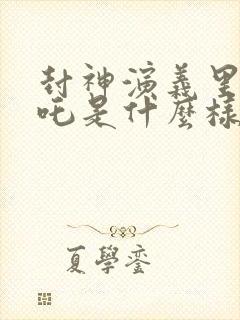 封神演義里
吒是什麼樣
夏學鑾